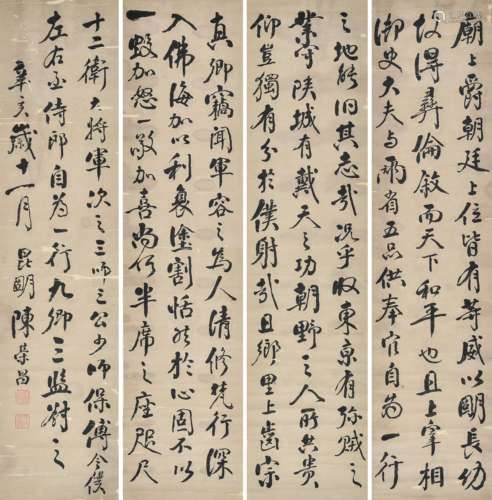 廟上爵朝廷上位皆有等威以明長幼
故得彝倫敘而天下和平也且上宰相
御史大夫与兩省五品供奉官自為一行
之地能汩其志哉況乎收東京有殄賊之
業守陝城有戴天之功朝野之人所共貴
仰豈獨有分於僕射哉且鄉里上齒宗
真卿竊聞軍容之為人清修梵行深
入佛海加以利衰塗割恬然於心固不以
一毀加怒一敬加喜尚何半席之座咫尺
十二衛大將軍次之三師三公少師保傅令僕
左右丞侍郎自為一行九卿三監對之
辛亥歲十一月 昆明陳榮昌